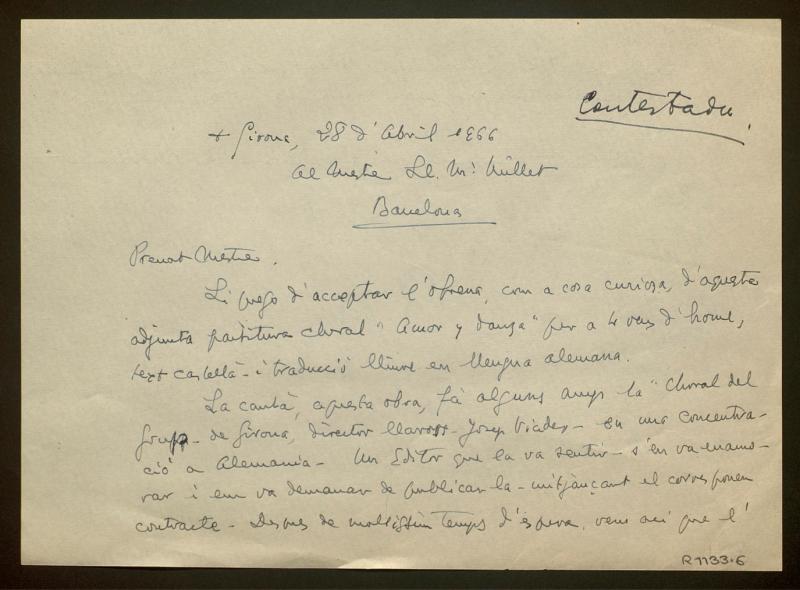 Contestada.
+ Girona, 28 d'Abril 1966
Al Mestre Ll. Mª Millet
Barcelona
Preuat Mestre.
Li prego d'acceptar l'ofrena, com a cosa curiosa, d'aquesta
adjunta partitura choral "Amor y dança" per a 4 veus d'home,
text castellà - i traducció lliure en llengua alemana.
La cantà, aquesta obra, fà alguns anys la "Choral del
Grup - de Girona, director llavors - Josep Viader - en una concentra-
ció a Alemania - Un Editor que la va sentir - s'en va enamo-
rar i em va demanar de publicar-la - mitjançant el corresponen
contracte - Despres de moltissim temps d'espera, vens aci que l'
R1133-6